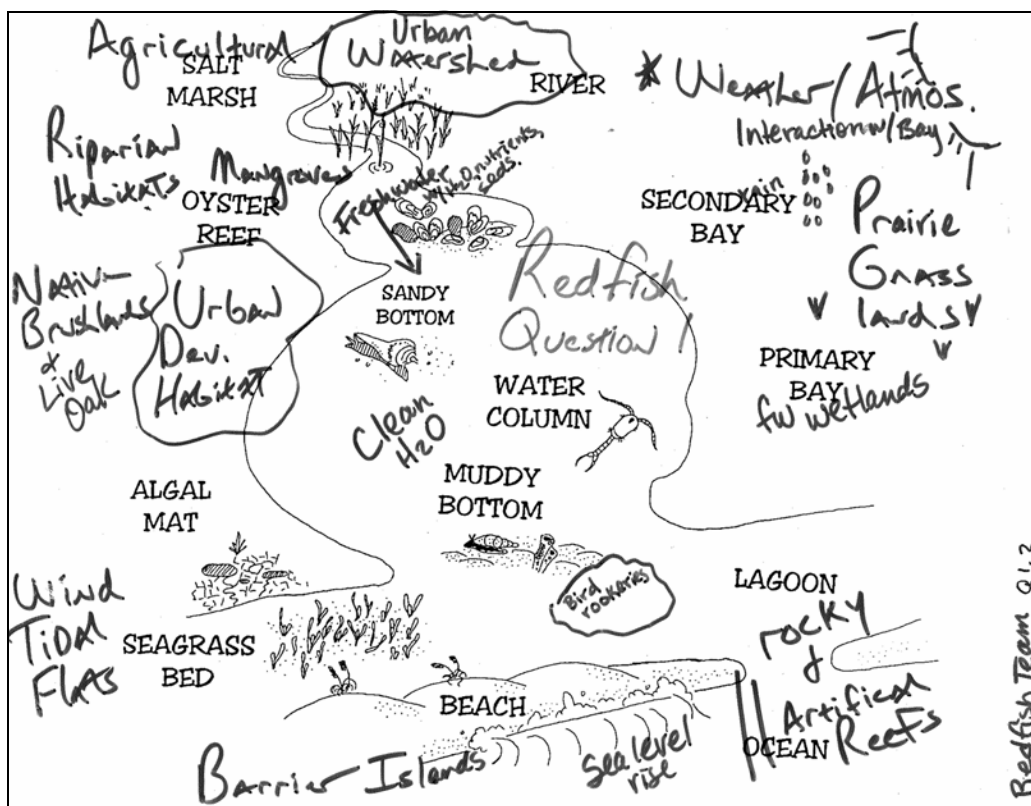 Agricultural
SALT
MARSH
Urban
Watershed
RIVER
* Weather/Atmos.
Interaction w/Bay
rain
Riparian
Habitats
Mangroves
OYSTER
REEF
Freshwater
w/H2O, nutrients,
seds.
SECONDARY
BAY
Prairie
Grass
lands
Native
Brushlands
&
Live
Oak
Urban
Dev.
Habitat
SANDY
BOTTOM
Redfish
Question 1
WATER
COLUMN
PRIMARY
BAY
fw wetlands
Clean
H2O
ALGAL
MAT
MUDDY
BOTTOM
Bird
rookeries
LAGOON
Wind
Tidal
Flats
SEAGRASS
BED
rocky
&
Artifical
Reefs
BEACH
OCEAN
Barrier Islands
Sea level
rise
Redfish Team